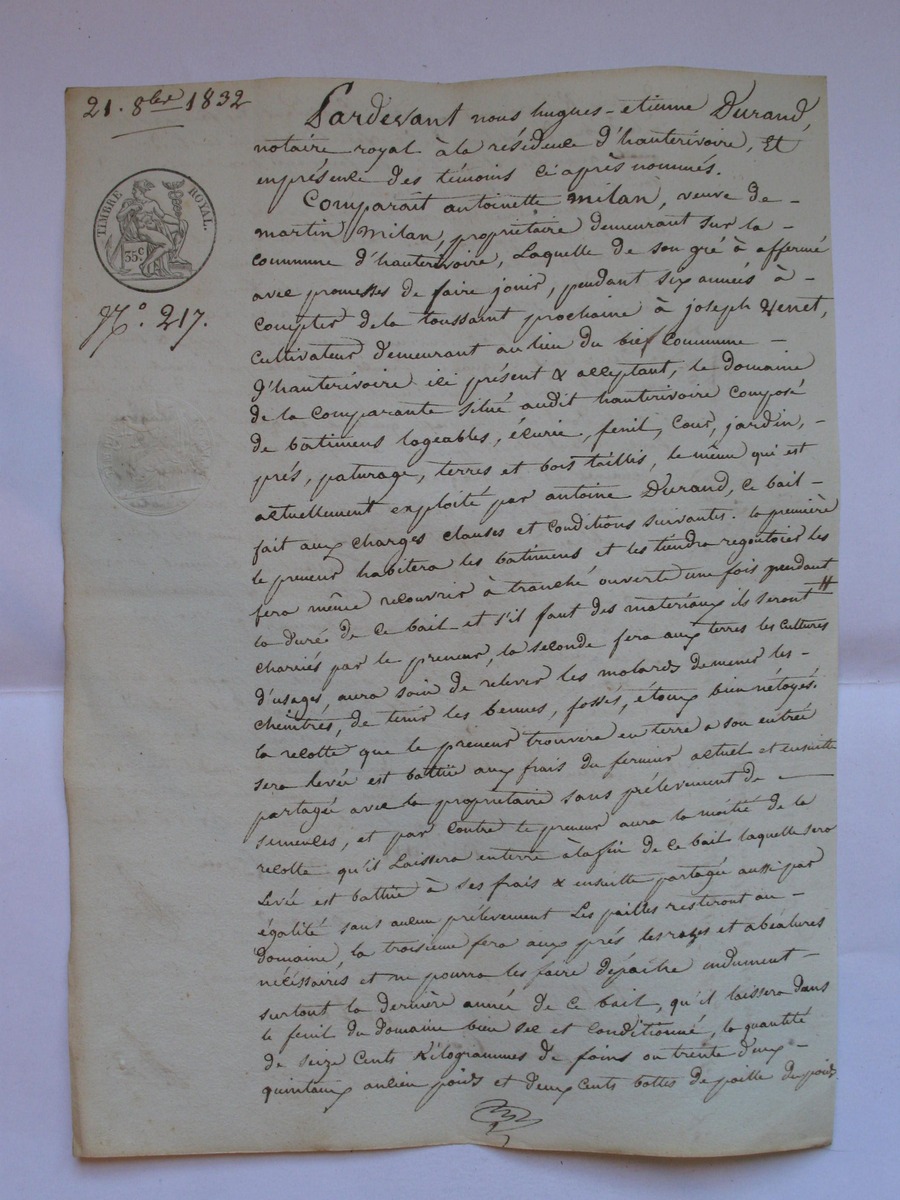 21. 8bre 1832
TIMBRE ROYAL.
35c
No. 217.
Pardevant nous hugues-etienne Durand,
notaire royal à la résidence d'hauterivoire, Et
enprésence des témoins Ci après nommés.
Comparait antoinette milan, veuve de
martin milan, propriétaire demeurant sur la
commune d'hauterivoire, Laquelle de son gré à affermé
avec promesses de faire jouir, pendant six années à
compter dela toussaint prochaine à joseph Venet,
cultivateur demeurant au lieu du bief commune
d'hauterivoire ici présent & acceptant, le domaine
de la comparante situé audit hauterivoire composé
de bâtimens logeables, écurie, fenil, cour, jardin,
prés, paturage, terres et bois taillis, le même qui est
actuellement exploité par antoine Durand, ce bail
fait aux charges clauses et conditions suivantes. la première
le preneur habitera les bâtimens et les tiendra regoutoier les
fera même recouvrir à tranché ouverte une fois pendant
la durée de ce bail et s'il faut des materiaux ils seront
charriés par le preneur, la seconde fera aux terres les cultures
d'usages, aura soin de relever les molards demener les
cheintres, de tenir les bennes, fossés, étoux bien nétoyés.
la recolte que le preneur trouvera en terre a son entrée
sera levée est battüe aux frais du fermier actuel et ensuitte
partagée avec la propriétaire sans prélevement de
semences, et par contre le preneur aura la moitié de la
recolte qu'il Laissera enterre àlafin de ce bail laquelle sera
Levée est battüe à ses frais & ensuitte partagée aussi par
égalité sans aucun prélevement Les pailles resteront au
domaine, la troisieme fera aux prés les razes et abéalures
nécéssaires et ne pourra les faire dépaitre induement
surtout la dernière année de ce bail, qu'il laissera dans
le fenil du domaine bien sec et conditionné, la quantité
de seize cents Kilogrammes de foins ou trente deux
quintaux ancien poids et deux cents bottes de paille de poids